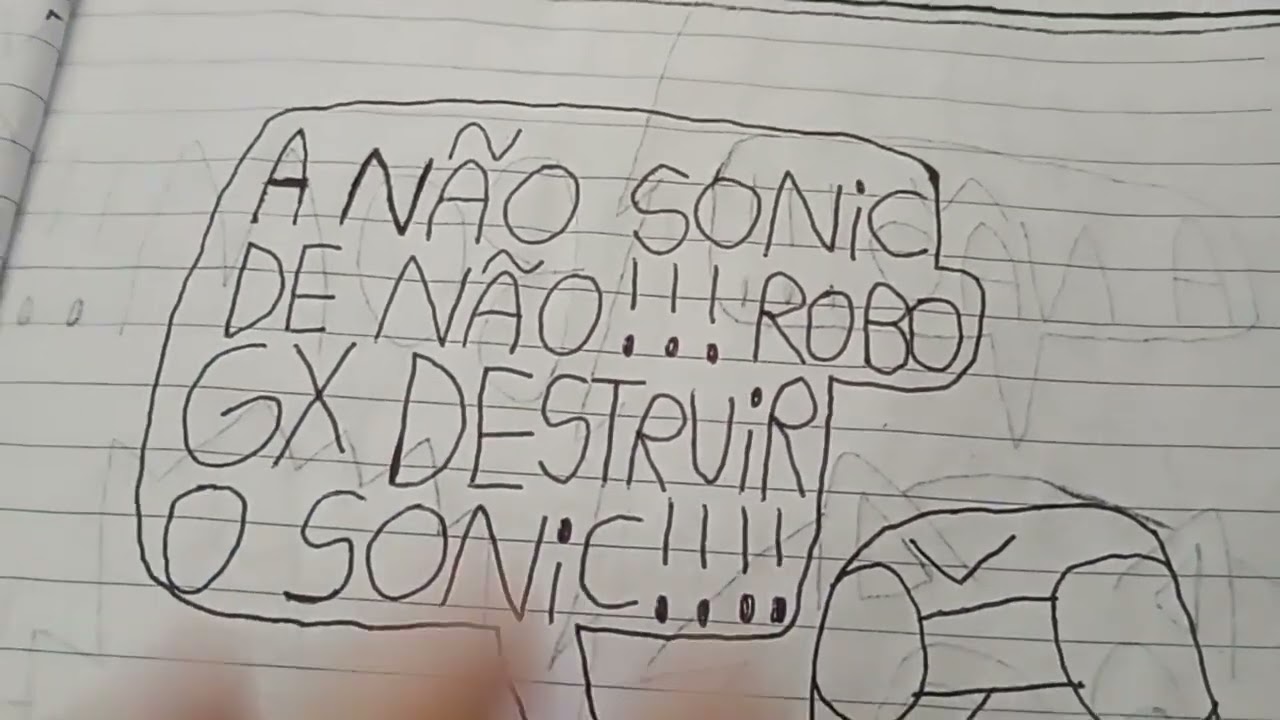 A NÃO SONiC
DE NÃO!!! ROBO
GX DESTRUiR
O SONiC!!!!